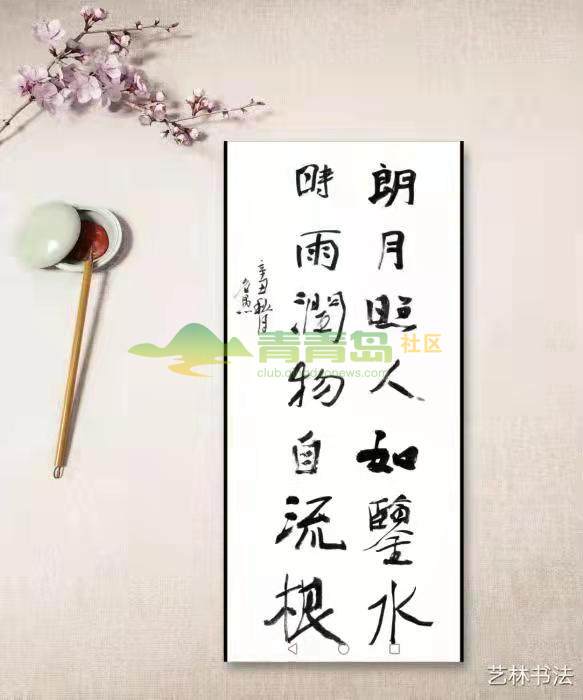 朗月照人如鑒水
時雨潤物自流根
辛丑秋月
青青岛社区
club.qingdaonews.com
艺林书法